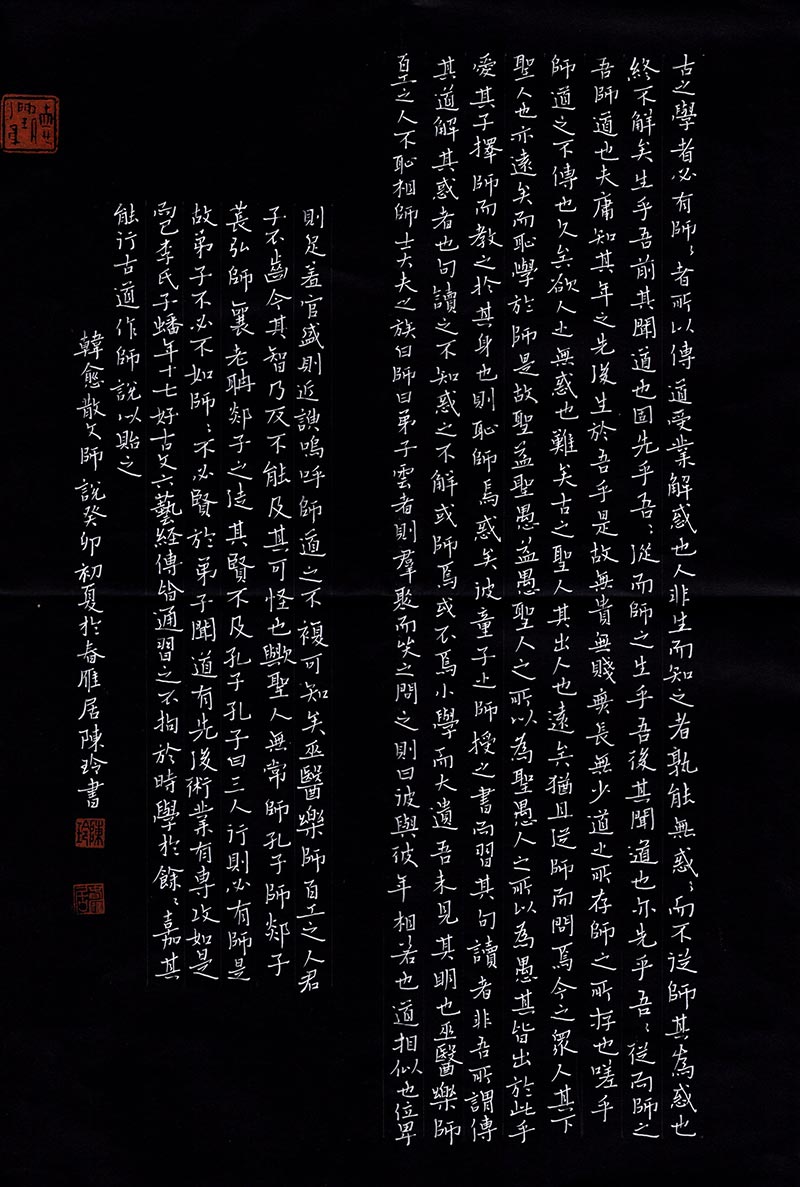 古之學者必有師：者所以傳道受業解惑也人非生而知之者孰能無惑：而不從師其為惑也
終不解矣生乎吾前其聞道也固先乎吾：從而師之生乎吾後其聞道也亦先乎吾：從而師之
吾師道也夫庸知其年之先後生於吾乎是故無貴無賤無長無少道之所存師之所存也嗟乎
師道之不傳也久矣欲人之無惑也難矣古之聖人其出人也遠矣猶且從師而問焉今之眾人其下
聖人也亦遠矣而恥學於師是故聖益聖愚益愚聖人之所以為聖愚人之所以為愚其皆出於此乎
愛其子擇師而教之於其身也則恥師焉惑矣彼童子之師授之書而習其句讀者非吾所謂傳
其道解其惑者也句讀之不知惑之不解或師焉或不焉小學而大遺吾未見其明也巫醫樂師
百工之人不恥相師士大夫之族曰師曰弟子雲者則羣聚而笑之問之則曰彼與彼年相若也道相似也位卑
則足羞官盛則近諛嗚呼師道之不複可知矣巫醫樂師百工之人君
子不齒今其智乃反不能及其可怪也歟聖人無常師孔子師郯子
萇弘師襄老聃郯子之徒其賢不及孔子孔子曰三人行則必有師是
故弟子不必不如師：不必賢於弟子聞道有先後術業有專攻如是
而已李氏子蟠年十七好古文六藝經傳皆通習之不拘於時學於餘：嘉其
能行古道作師說以貽之
韓愈散文師說癸卯初夏於春雁居陳玲書
陳玲